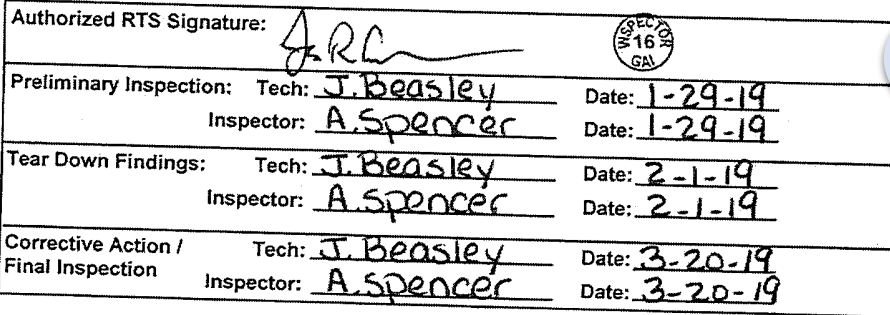 Authorized RTS Signature:
INSPECTOR
16
GAI
Preliminary Inspection: Tech: J. Beasley Date: 1-29-19
Inspector: A. Spencer Date: 1-29-19
Tear Down Findings: Tech: J. Beasley Date: 2-1-19
Inspector: A. Spencer Date: 2-1-19
Corrective Action / Tech: J. Beasley Date: 3-20-19
Final Inspection Inspector: A. Spencer Date: 3-20-19